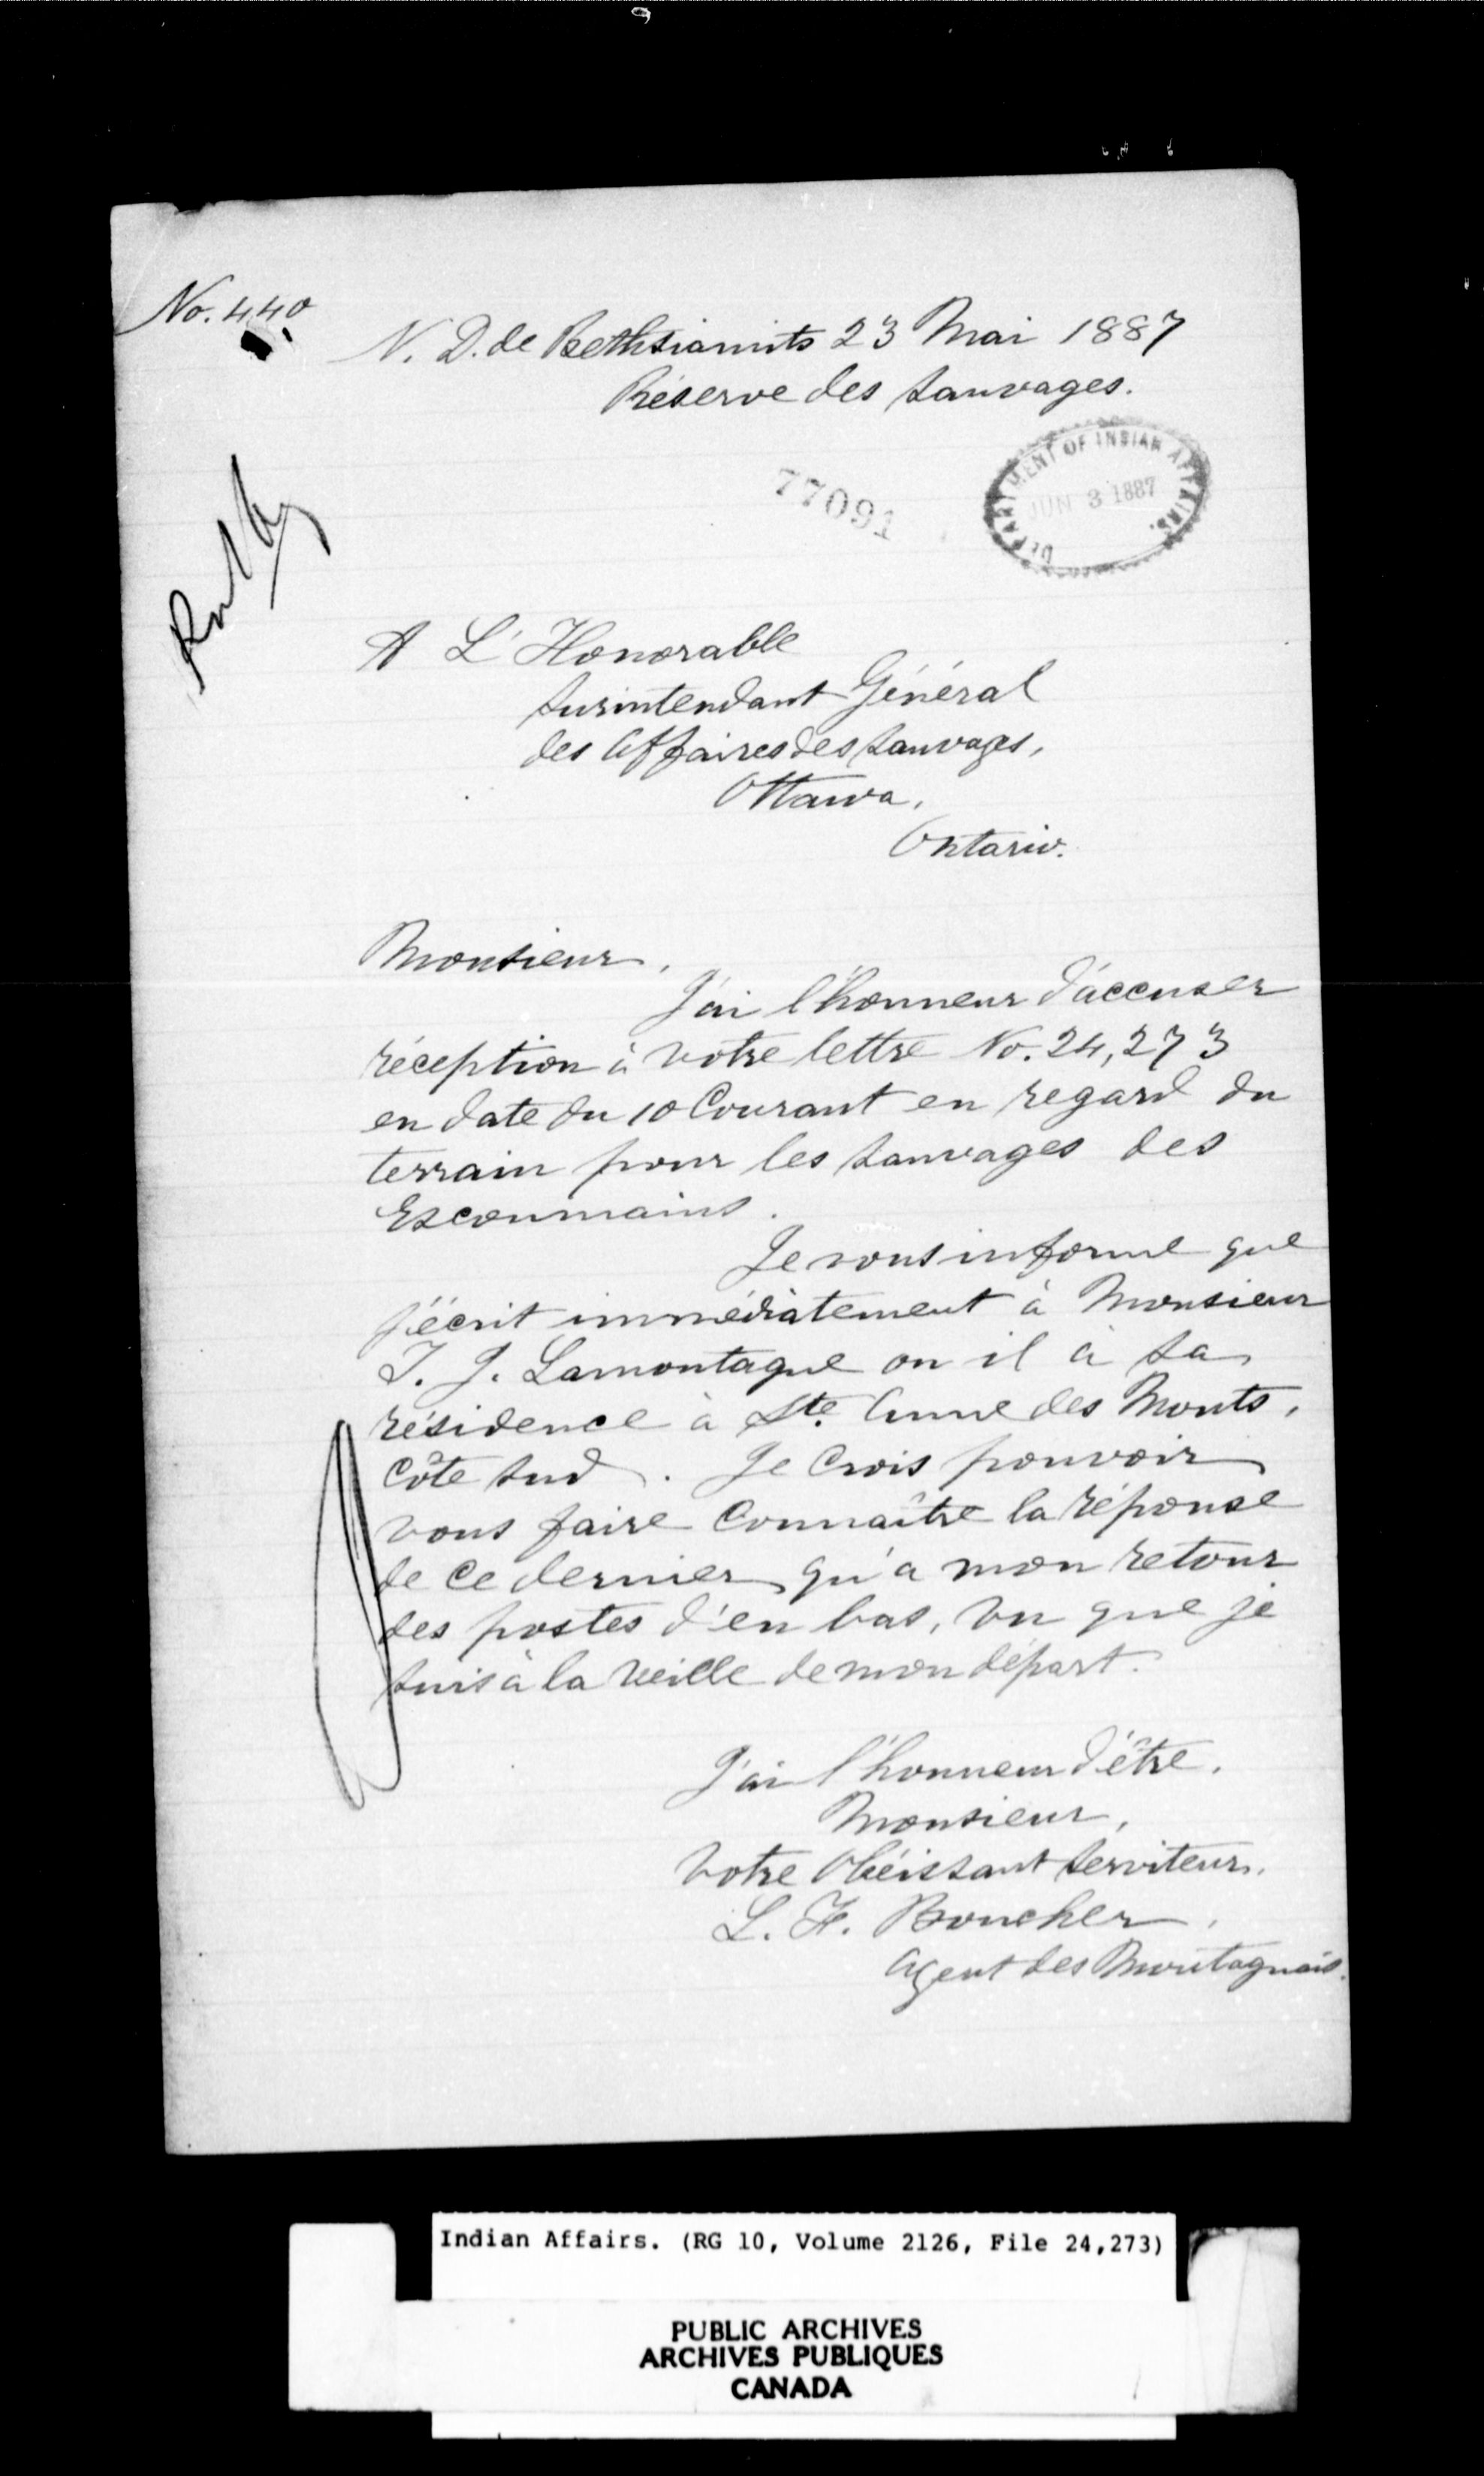 No. 440
N. D. de Bethsiamits 23 Mai 1887
Réserve des Sauvages.
77091
DEPARTMENT OF INDIAN AFFAIRS.
JUN 3 1887
A L'Honorable
Surintendant Général
des Affaires des Sauvages,
Ottawa,
Ontario.
Monsieur,
J'ai l'honneur d'accuser
réception à votre lettre No. 24,273
en date du 10 Courant en regard du
terrain pour les Sauvages des
Escoumains.
Je vous informe que
j'écrit immédiatement à Monsieur
J. J. Lamontagne ou il à sa
résidence à Ste. Anne des Monts,
Côte Sud. Je Crois pouvoir
vous faire Connaître la réponse
de ce dernier qu'a mon retour
des postes d'en bas, vu que je
suis à la veille de mon départ.
J'ai l'honneur d'être,
Monsieur,
Votre Obéissant Serviteur,
L. F. Boucher,
Agent des Montagnais.
Indian Affairs. (RG 10, Volume 2126, File 24,273)
PUBLIC ARCHIVES
ARCHIVES PUBLIQUES
CANADA